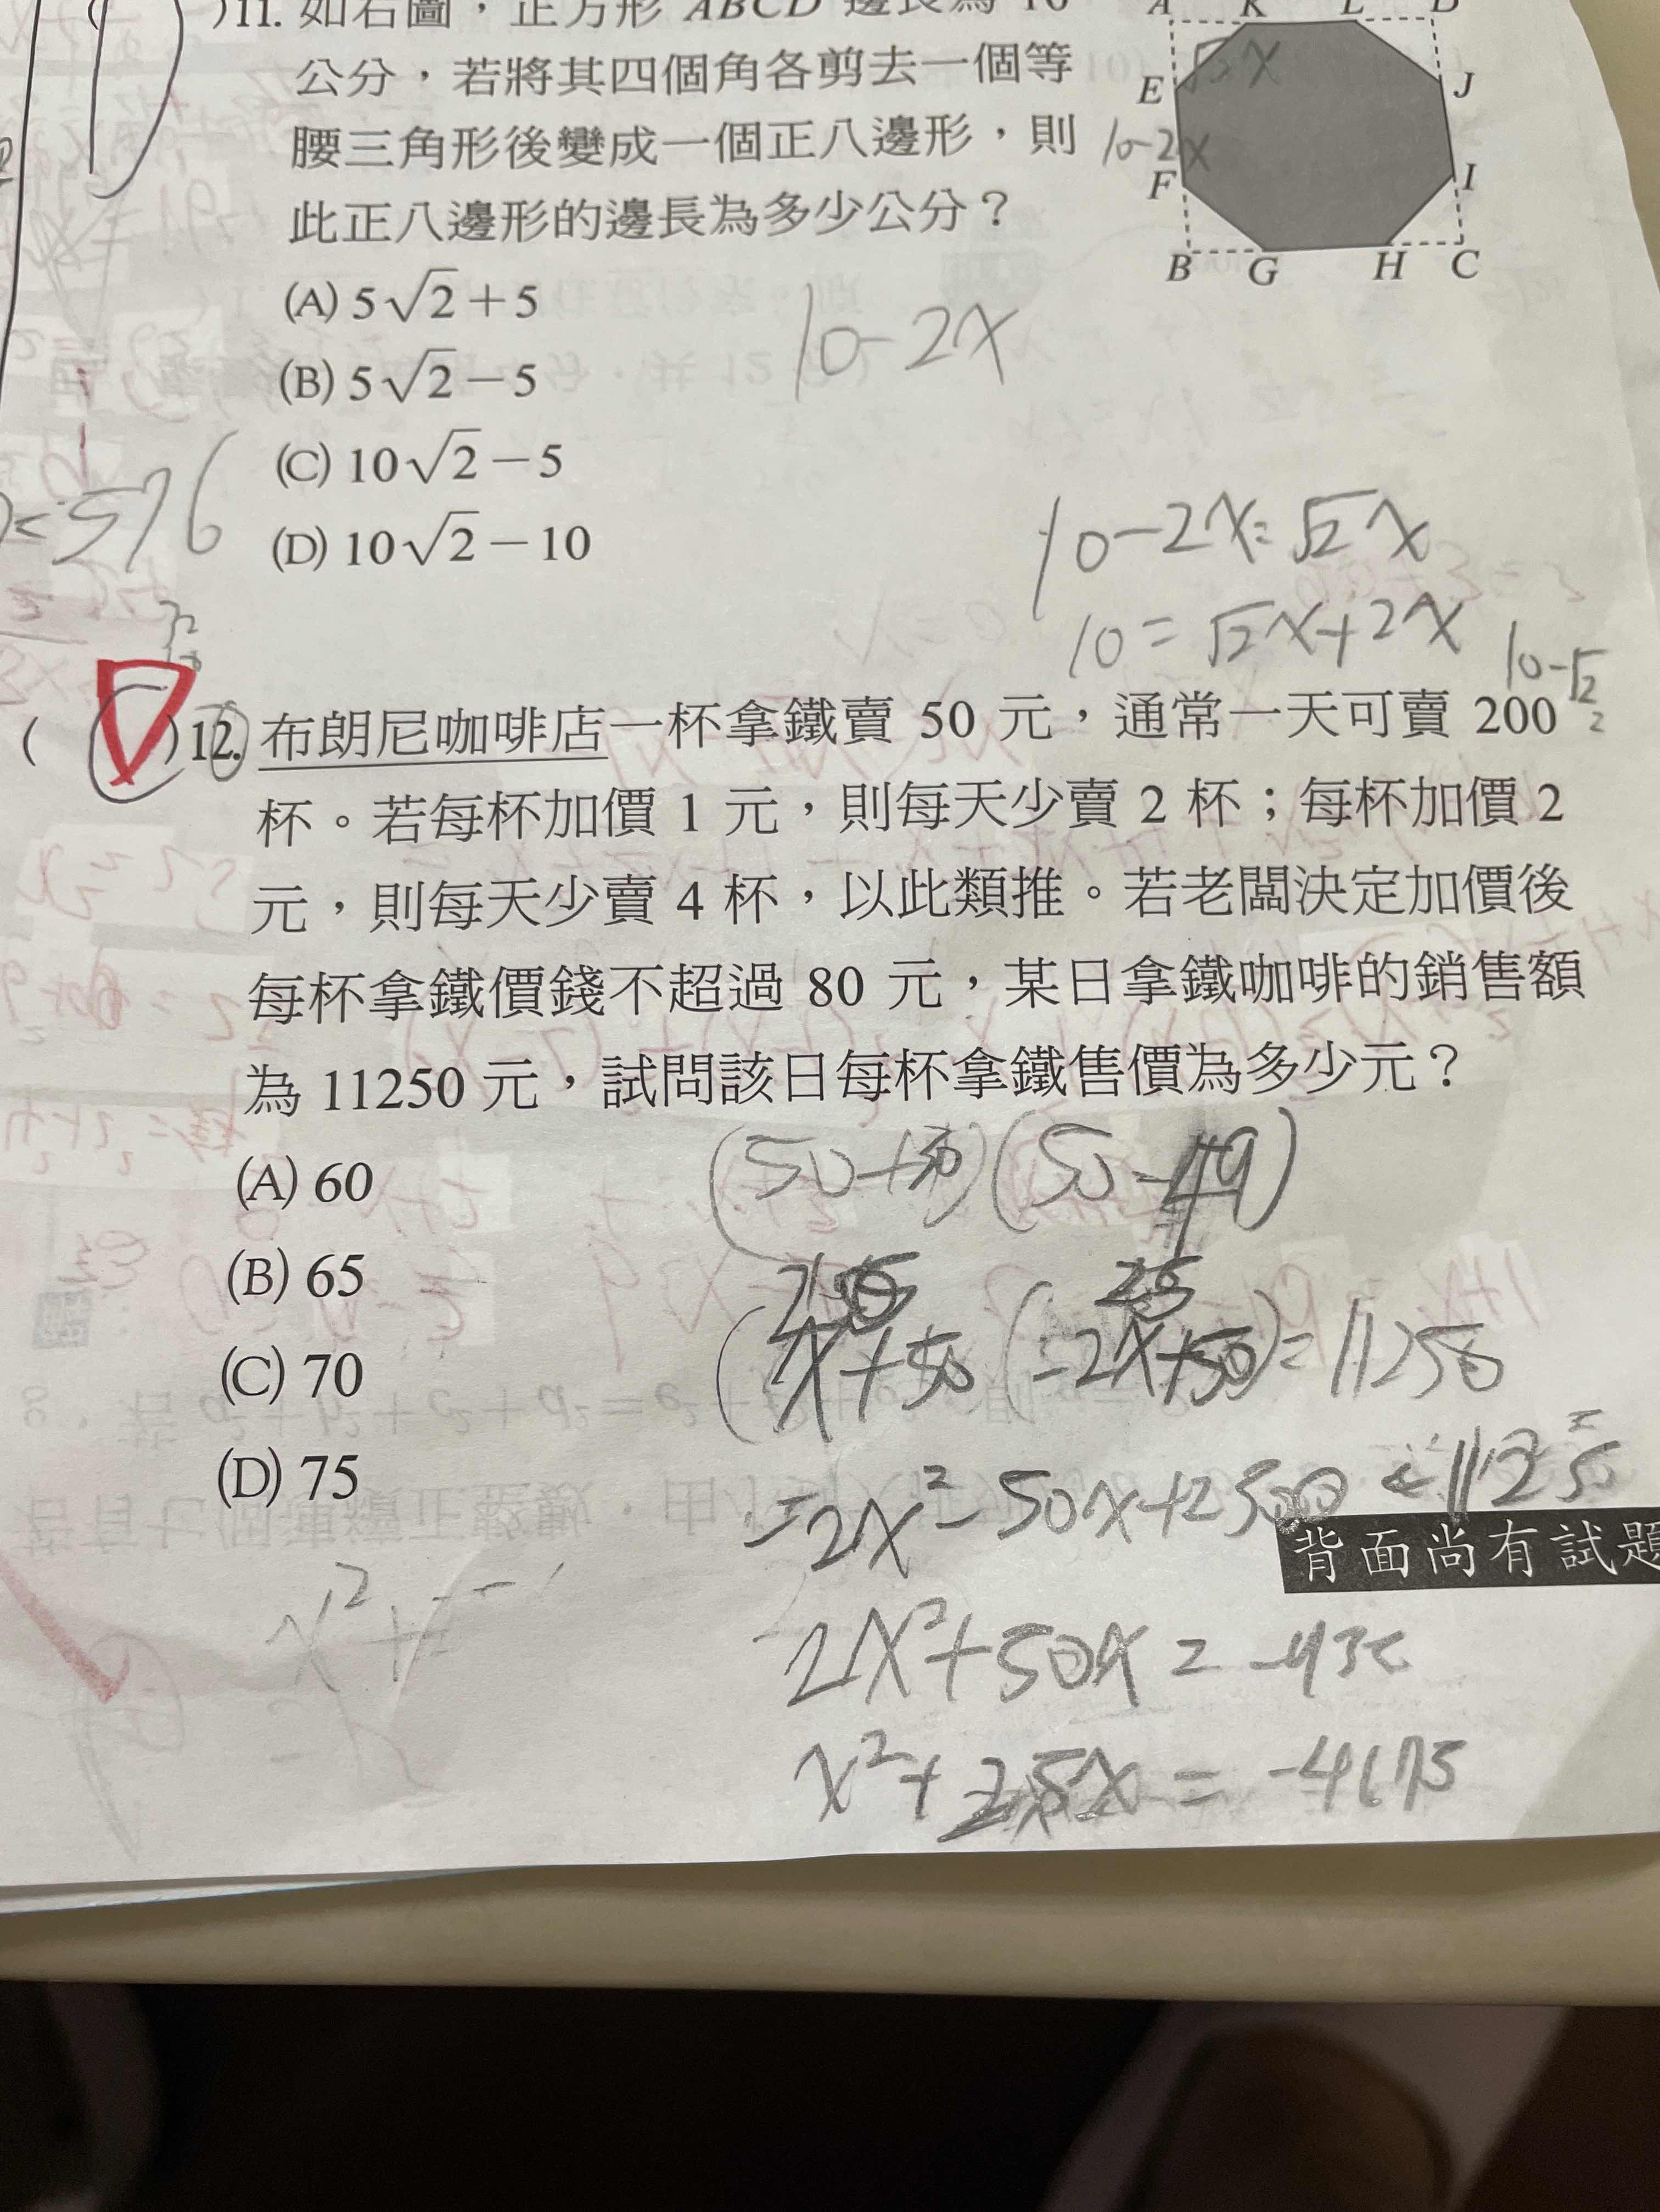 )11. 如右圖，正方形 ABCD 邊長為 10
公分，若將其四個角各剪去一個等
腰三角形後變成一個正八邊形，則
此正八邊形的邊長為多少公分？
(A) 5√2＋5
(B) 5√2－5
(C) 10√2－5
(D) 10√2－10
A K L D
E J
F I
B G H C
√2x
10-2x
10-2x
10-2x=√2x
10=√2x+2x
10-√2
2
=576
( )12. 布朗尼咖啡店一杯拿鐵賣 50 元，通常一天可賣 200
杯。若每杯加價 1 元，則每天少賣 2 杯；每杯加價 2
元，則每天少賣 4 杯，以此類推。若老闆決定加價後
每杯拿鐵價錢不超過 80 元，某日拿鐵咖啡的銷售額
為 11250 元，試問該日每杯拿鐵售價為多少元？
(A) 60
(B) 65
(C) 70
(D) 75
25
(x+50 (-2x+50)=11250
-2x²-50x+2500
2x²+50x=
x²+25x=
x²+
背面尚有試題